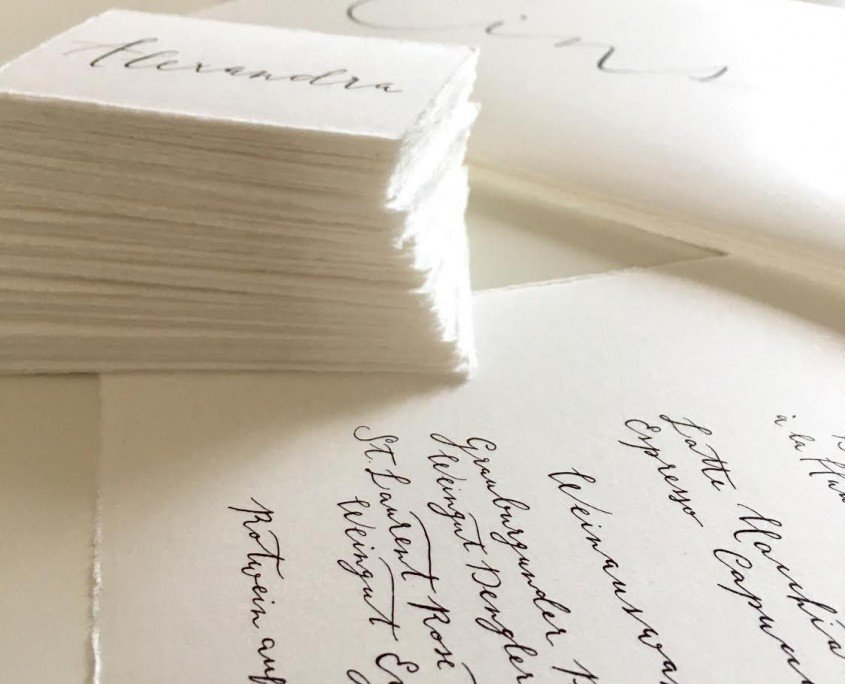 Alexandra
Eins
à la
Latte Macchia
Espresso Capucc
Weinauswa
Grauburgunder
Weingut Dengler
St. Laurent Rosé
Weingut
Rotwein auf